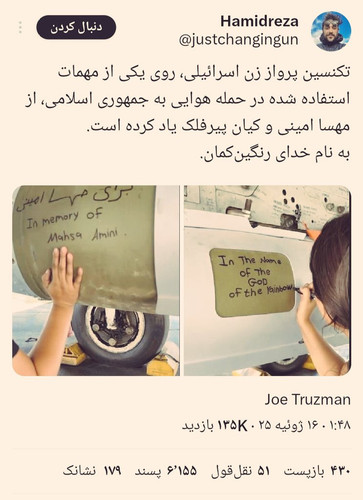 دنبال کردن
Hamidreza
@justchangingun
تکنسین پرواز زن اسرائیلی، روی یکی از مهمات
استفاده شده در حمله هوایی به جمهوری اسلامی، از
مهسا امینی و کیان پیرفلک یاد کرده است.
به نام خدای رنگین‌کمان.
برای مهسا امینی
In memory of
Mahsa Amini.
In The Name
of The
GOD
of the Rainbow
Joe Truzman
۱:۴۸ · ۱۶ ژوئیه ۲۵ · ۱۳۵K بازدید
۴۳۰ بازپست ۵۱ نقل‌قول ۶٬۱۵۵ پسند ۱۷۹ نشانک